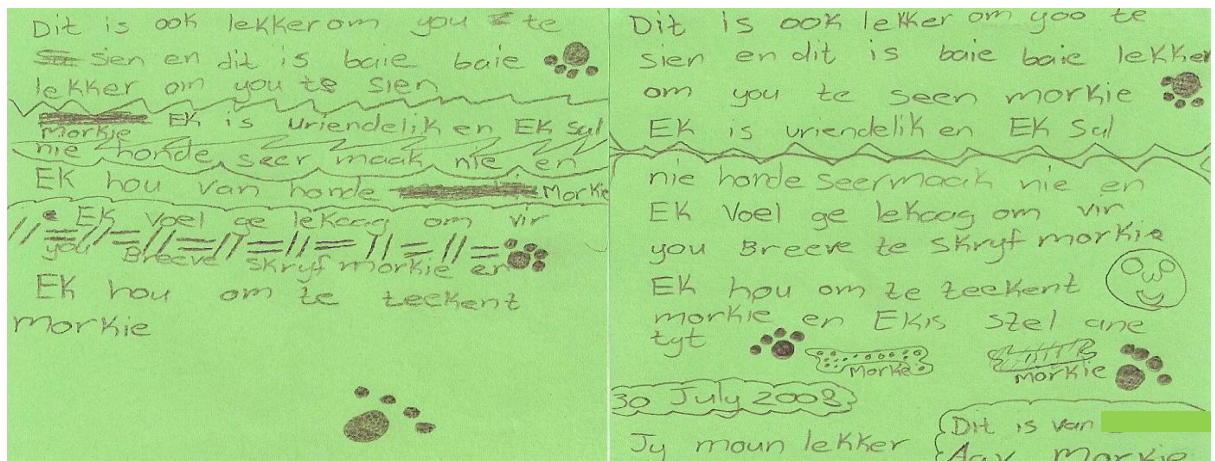 Dit is ook lekker om you te
sien en dit is baie baie
lekker om you te sien
morkie EK is vriendelik en EK sal
nie honde seer maak nie en
EK hou van honde Morkie
EK voel ge lekaag om vir
you Breeve skryf morkie en
EK hou om te teekent
morkie
Dit is ook lekker om yoo te
sien en dit is baie baie lekker
om you te seen morkie
EK is vriendelik en EK sal
nie honde seermaak nie en
EK voel ge lekaag om vir
you Breeve te skryf morkie
EK hou om te teekent
morkie en EKis stel ane
tyt
Morkie
morkie
30 July 2008
Jy moun lekker
Dit is van
morkie